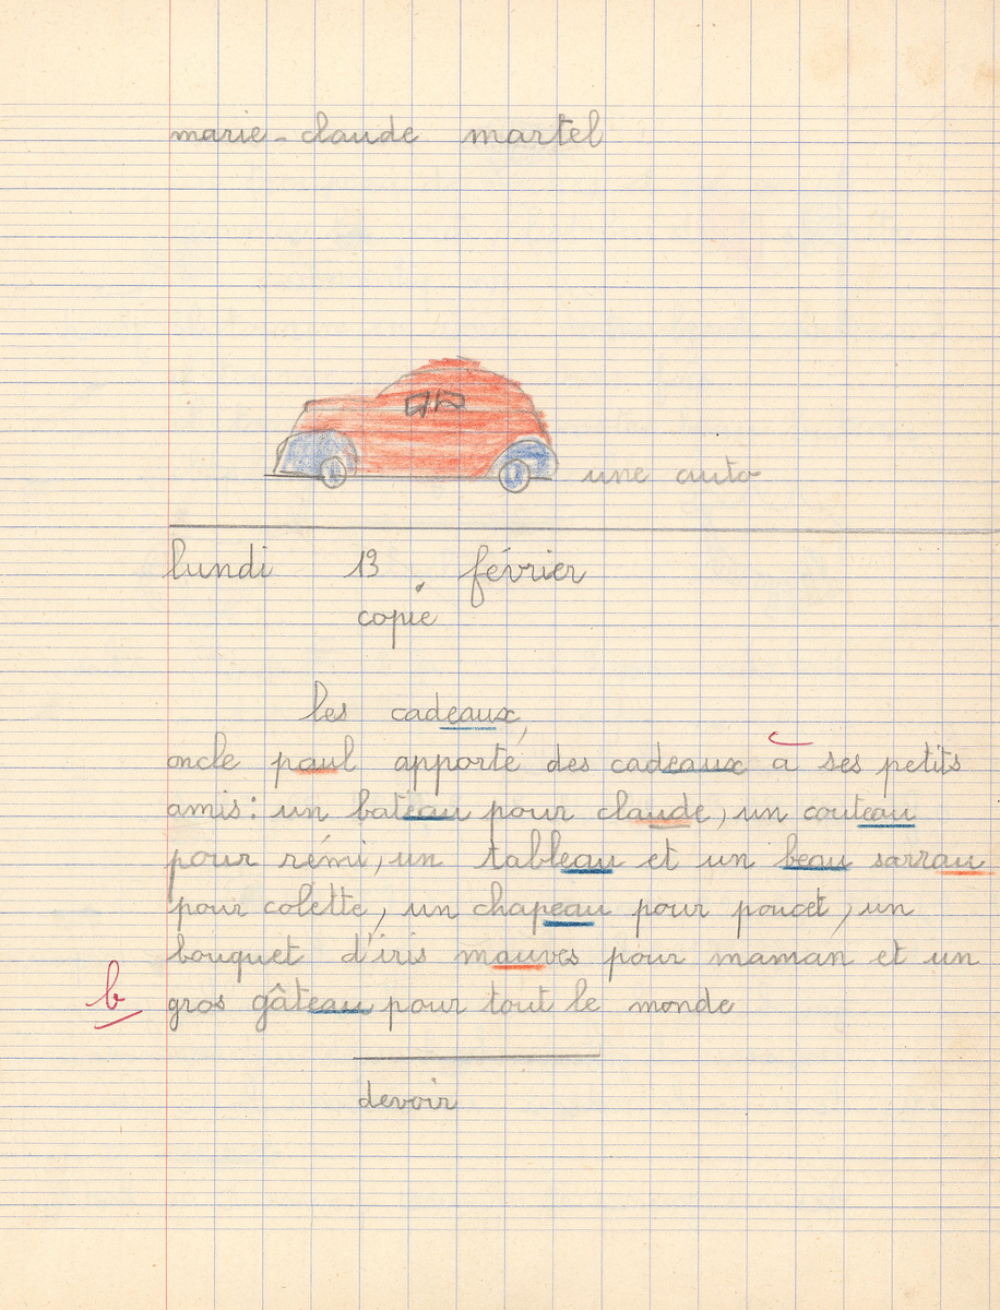 marie-claude martel
une auto
lundi 13 février
copie
les cadeaux,
oncle paul apporté des cadeaux à ses petits
amis: un bateau pour claude, un couteau
pour rémi, un tableau et un beau sarrau
pour colette, un chapeau pour poucet, un
bouquet d'iris mauves pour maman et un
b gros gâteau pour tout le monde
devoir